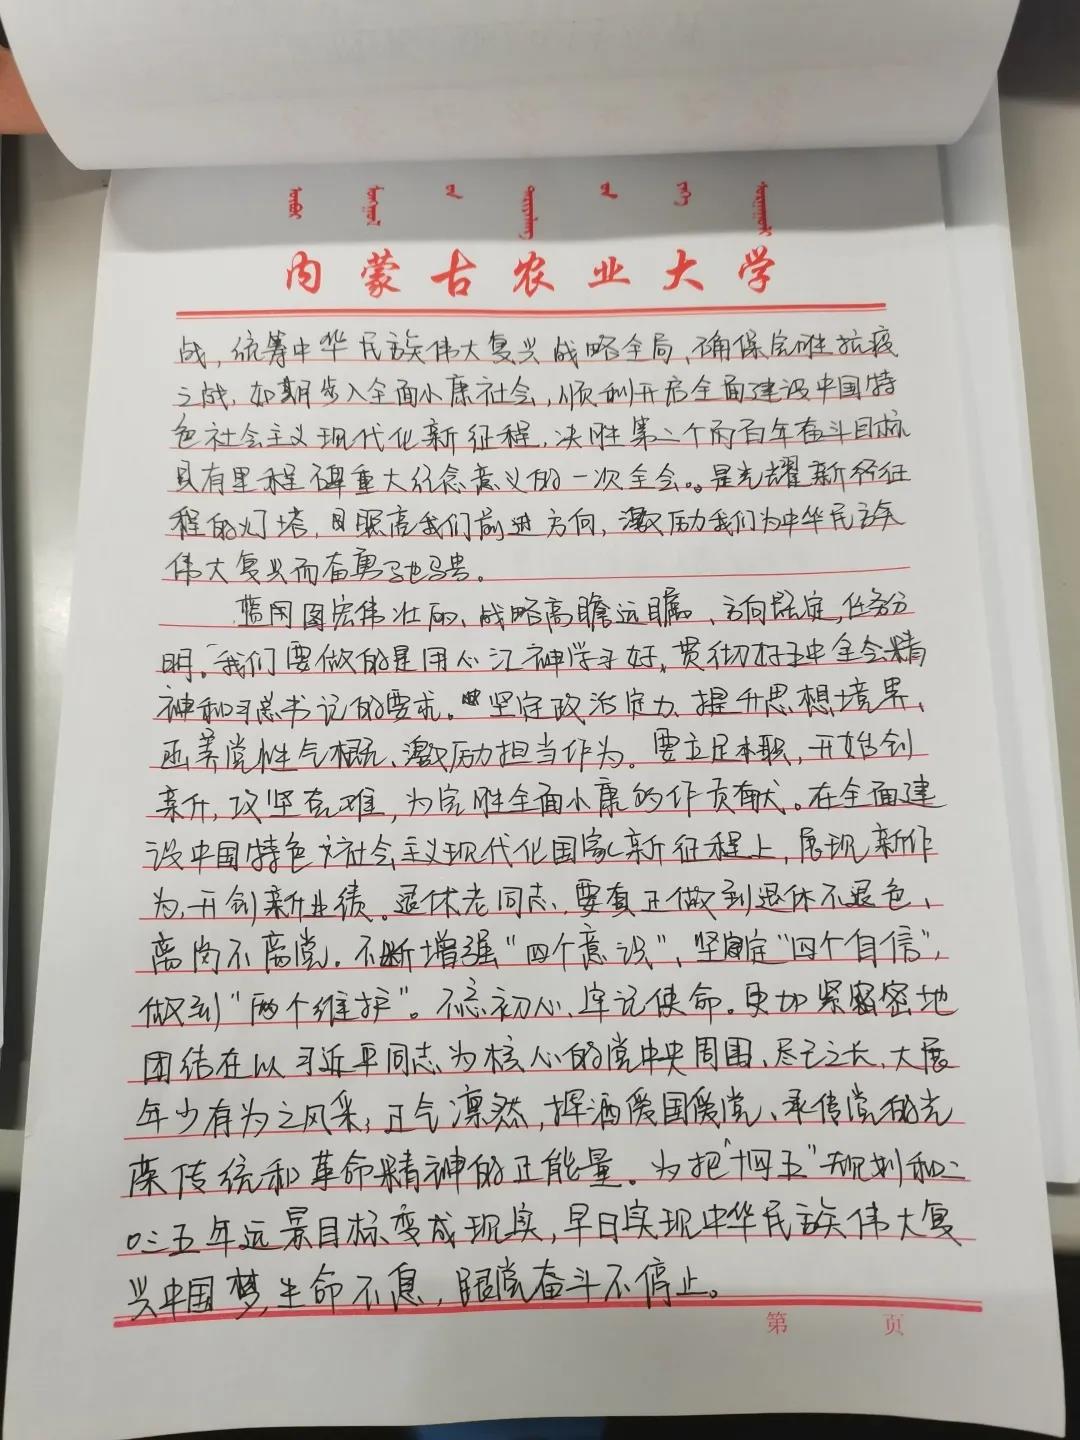 内蒙古农业大学
战，统筹中华民族伟大复兴战略全局、确保完胜抗疫
之战，如期步入全面小康社会，顺利开启全面建设中国特
色社会主义现代化新征程，决胜第二个两百年奋斗目标
具有里程碑重大纪念意义的一次全会。是光耀新征
程的灯塔，照亮我们前进方向，激励我们为中华民族
伟大复兴而奋勇驰骋。
蓝图宏伟壮丽、战略高瞻远瞩、方向既定，任务分
明。我们要做的是用心江神学子好，贯彻好五中全会精
神和习总书记的要求。坚定政治定力、提升思想境界、
函养党性气概、激励担当作为。要立足本职，开始创
新，攻坚克难，为完胜全面小康的作贡献。在全面建
设中国特色社会主义现代化国家新征程上，展现新作
为，开创新业绩。退休老同志，要真正做到退休不退色、
离岗不离党。不断增强“四个意识”、坚定“四个自信”，
做到“两个维护”。不忘初心、牢记使命。更加紧密地
团结在以习近平同志为核心的党中央周围、尽己之长、大展
年少有为之风采；正气凛然，挥洒爱国爱党、承传党的光
荣传统和革命精神的正能量。为把“十四五”规划和二
〇三五年远景目标变成现实，早日实现中华民族伟大复
兴中国梦，生命不息，跟党奋斗不停止。
第 页